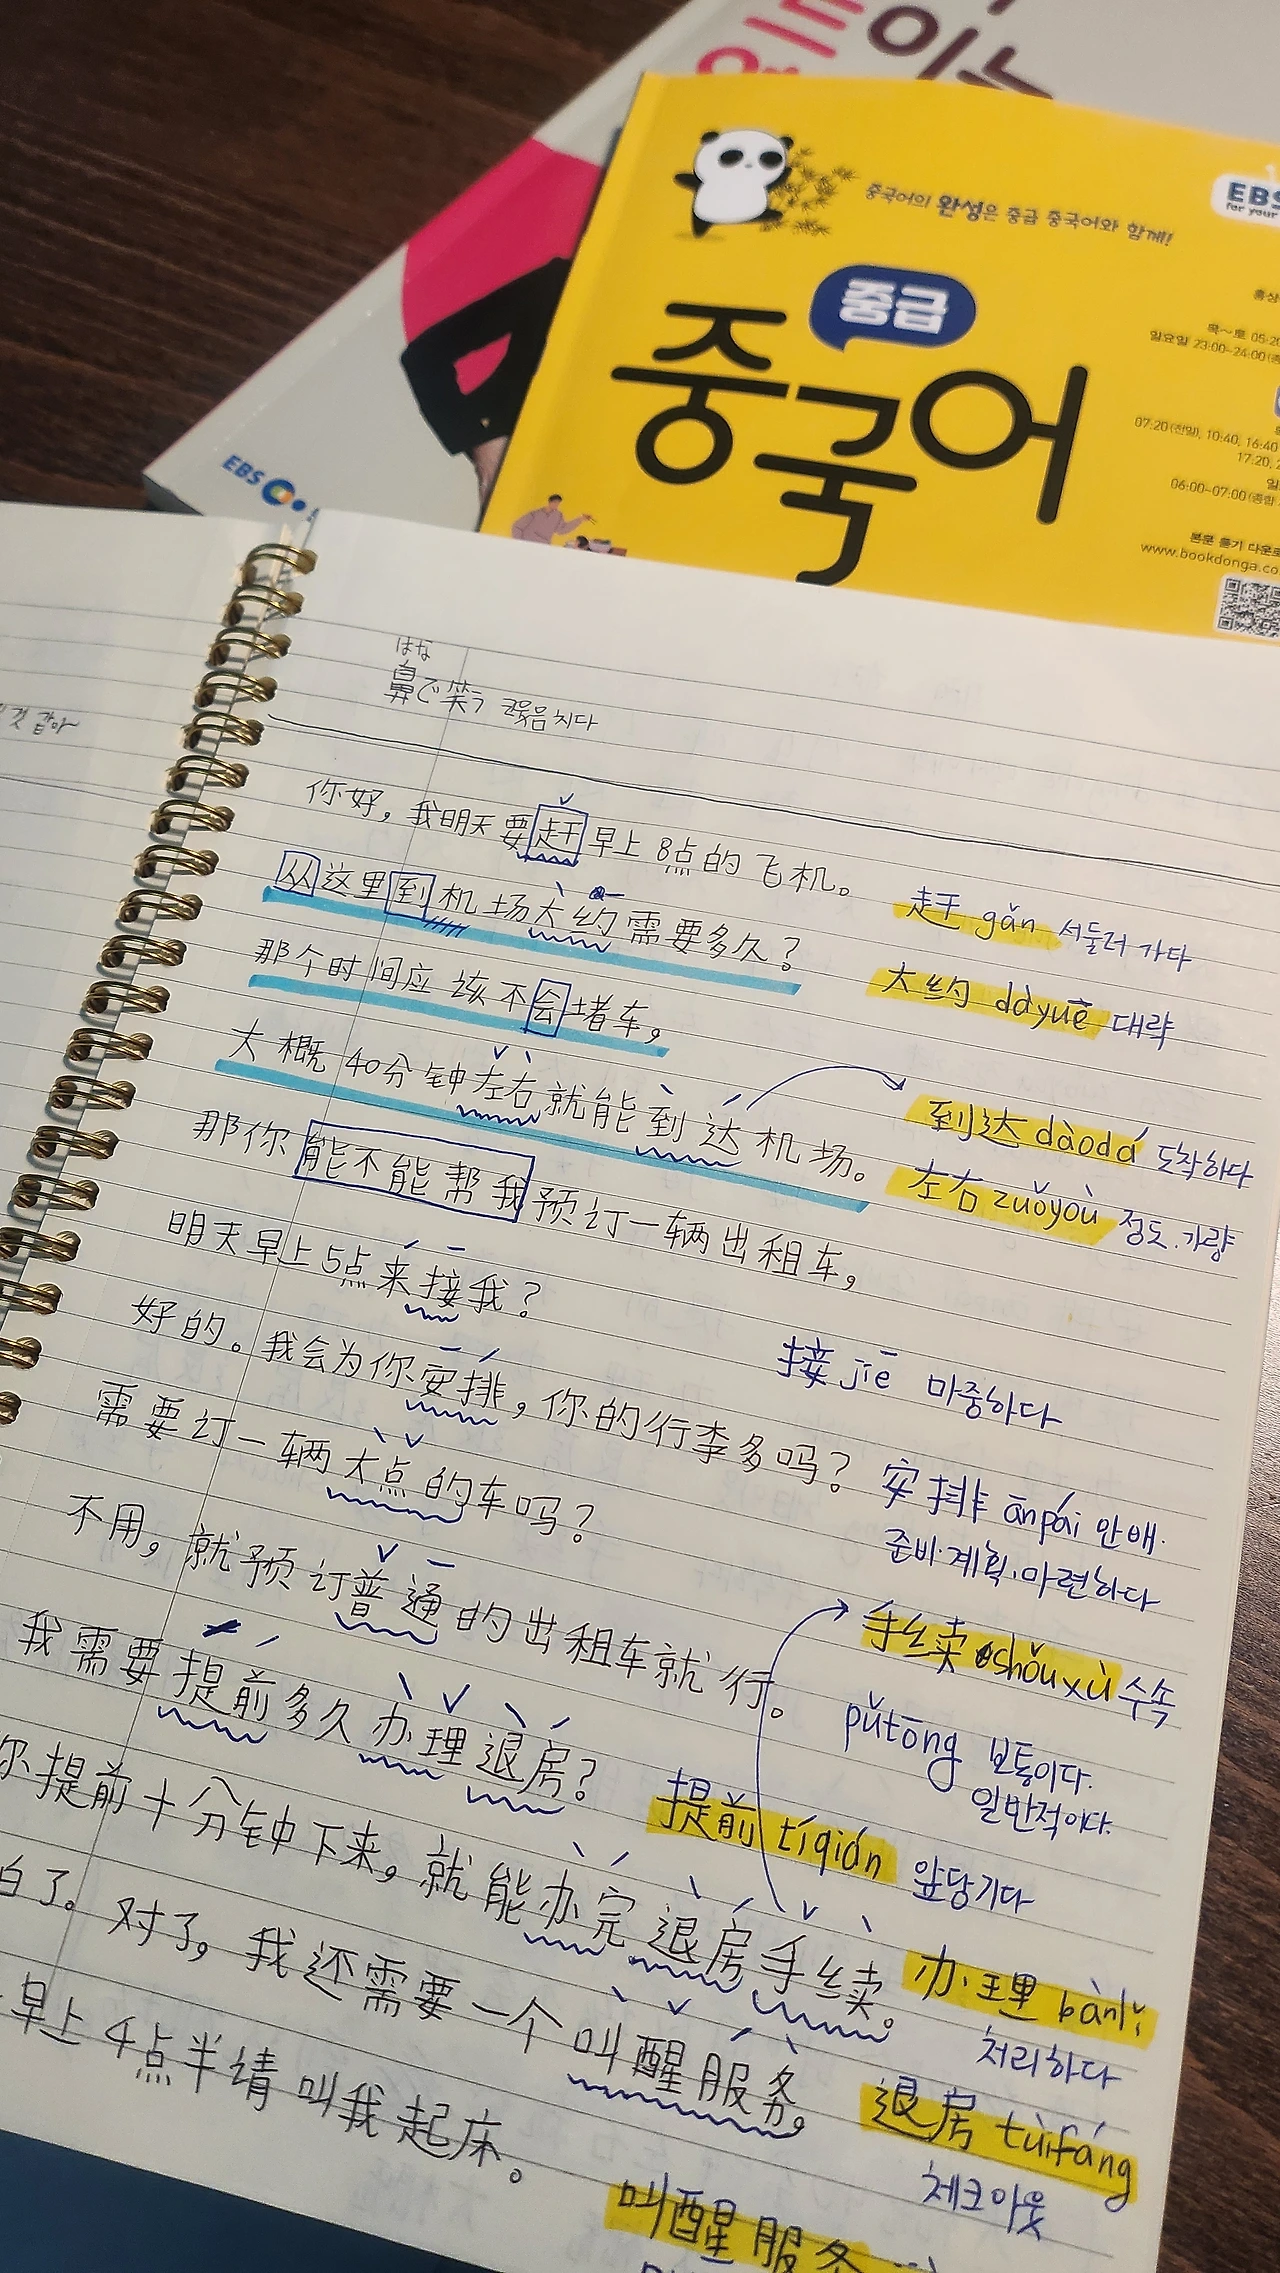 중국어의 완성은 중급 중국어와 함께!
EBS
for your
중급
중국어
목~토 05:20
일요일 23:00-24:00
07:20(전일), 10:40, 16:40
17:20, 2
06:00-07:00(종합
본문 듣기 다운로
www.bookdonga.co
EBS
것 같아~
はな
鼻で笑う 코웃음 치다
你好，我明天要赶早上8点的飞机。
从这里到机场大约需要多久？
赶 gǎn 서둘러 가다
那个时间应该不会堵车，
大约 dàyuē 대략
大概40分钟左右就能到达机场。
到达 dàodá 도착하다
那你能不能帮我预订一辆出租车，
左右 zuǒyòu 정도.가량
明天早上5点来接我？
接 jiē 마중하다
好的。我会为你安排，你的行李多吗？
安排 ānpái 안배.
준비·계획·마련하다
需要订一辆大点的车吗？
不用，就预订普通的出租车就行。
手续 shǒuxù 수속
pǔtōng 보통이다.
일반적이다.
我需要提前多久办理退房？
提前 tíqián 앞당기다
你提前十分钟下来，就能办完退房手续。
办理 bànlǐ
처리하다
白了。对了，我还需要一个叫醒服务。
退房 tùifáng
체크아웃
早上4点半请叫我起床。
叫醒服务